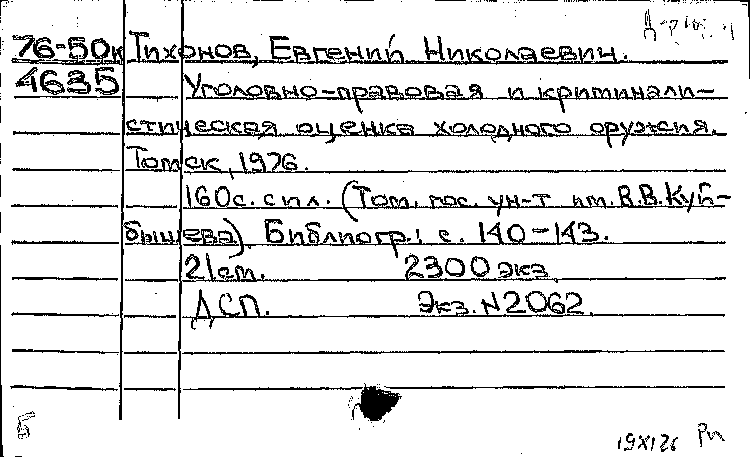 76-50к Тихонов, Евгений Николаевич.
4635 Уголовно-правовая и криминали-
стическая оценка холодного оружия.
Томск, 1976.
160с. с ил. (Том. гос. ун-т им. В.В. Куй-
бышева). Библиогр.: с. 140-143.
21см. 2300 экз.
ДСП. Экз. N2062.
Б